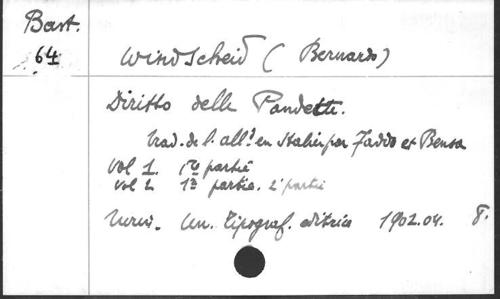 Bart.
64
Windscheid (Bernardo)
Diritto delle Pandette.
trad. de l'all.d en Italien par Fadda et Bensa
Vol 1. 1re partie
Vol 2 1re partie. 2e partie
Un. Tipograf. editrice 1902.04. 8.